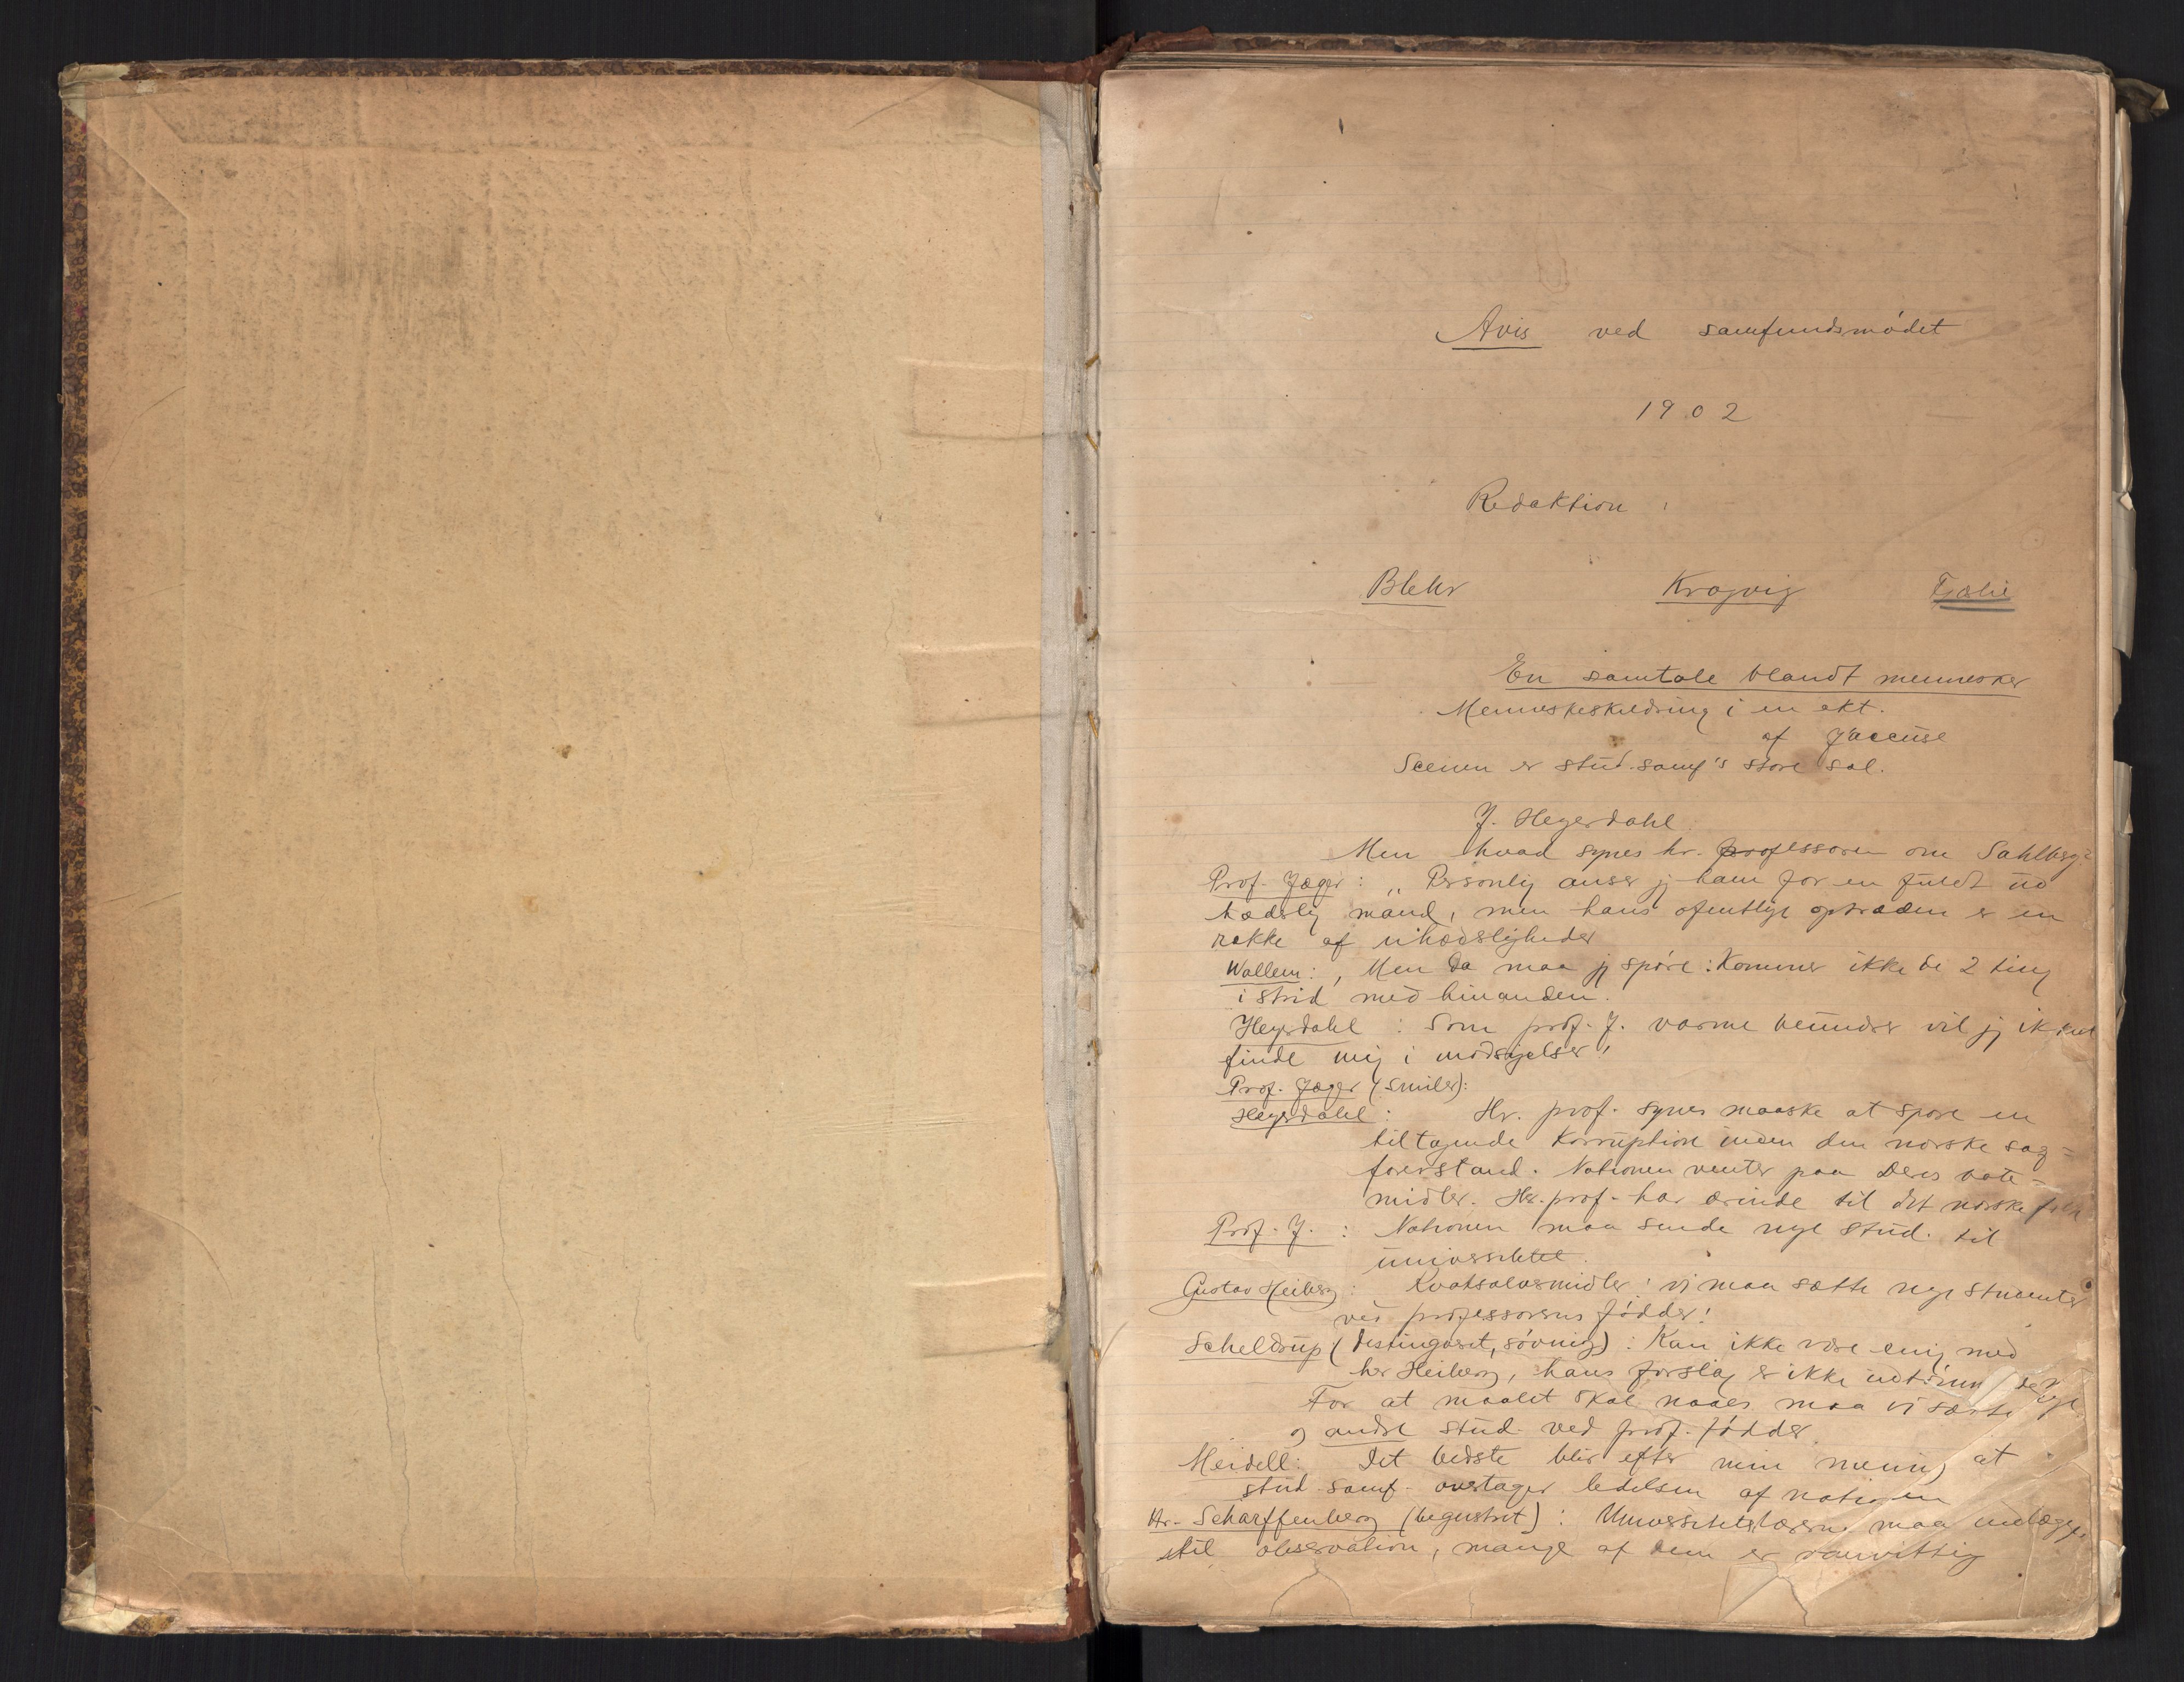 Avis ved samfundsmødet
1902
Redaktion:
Blehr Krogvig
En samtale blandt mennesker
Menneskeskildring i en akt.
af J'accuse
Scenen er stud. samf's store sal.
J. Hegerdahl.
Men hvad synes hr. professoren om Sahlberg?
Prof. Jæger: „Personlig anser jg ham for en fuldt ud
hæderlig mand, men hans ofentlige optræden er en
række af uhæderligheder
Wallem: , Men da maa jg spóre: Kommer ikke de 2 ting
i strid med hinanden.
Hegerdahl: Som prof. J. varme beundrer vil jg ikke
finde mig i modsigelser!
Prof. Jæger (smiler):
Hegerdahl: Hr. prof. synes maaske at spore en
tiltagende Korruption inden den norske sag=
førerstand. Nationen venter paa Deres bote-
midler. Hr. prof. har ærinde til det norske folk
Prof. J.: Nationen maa sende nye stud. til
universitetet.
Gustav Heiberg: Kvaksalvermidler! vi maa sætte nye studenter
ved professorens fødder!
Scheldrup (distingveret, søvnig): Kan ikke være enig med
hr Heiberg, hans forslag er ikke
For at maalet skal naaes maa vi sætte nye
og andre stud. ved prof. fødder
Meidell: Det bedste blir efter min mening at
stud. samf. overtager ledelsen af nationen
Hr. Scharffenberg (begeistret): Universitetslærerne maa indlægges
til observation, mange af dem er vanvittig